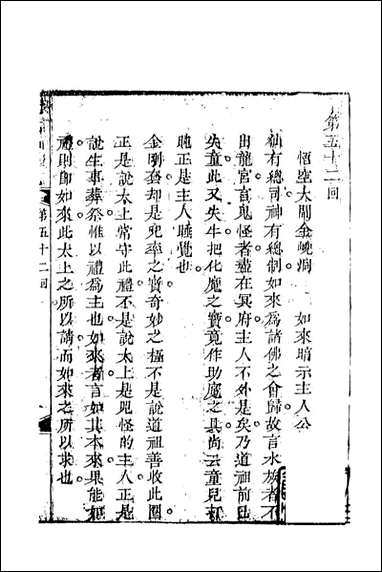 第五十二回
悟空大鬧金𡼏洞　如來暗示主人公
仙有總司神有總制如來為諸佛之會歸故言水族者不
出龍宮言鬼怪者盡在冥府主人不外是矣乃道祖前已
失童此又失牛把化魔之寶竟作助魔之具尚云童兒
盹正是主人睡覺也
金剛套却是兜率之寶奇妙之極不是說道祖善收此圈
正是說太上常守此禮不是說太上是兕怪的主人正是
說生事葬祭惟以禮為主也如來者言如其本來果能如
禮則即如來此太上之所以請而如來之所以求也
第五十二回